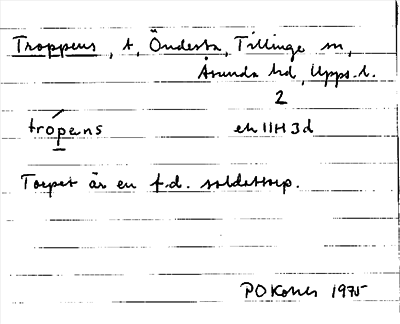 Troppens, t, Öndesta, Tillinge sn,
Åsunda hd, Upps. l.
2
trópens ek 11H 3d
Torpet är en f.d. soldattorp.
1975